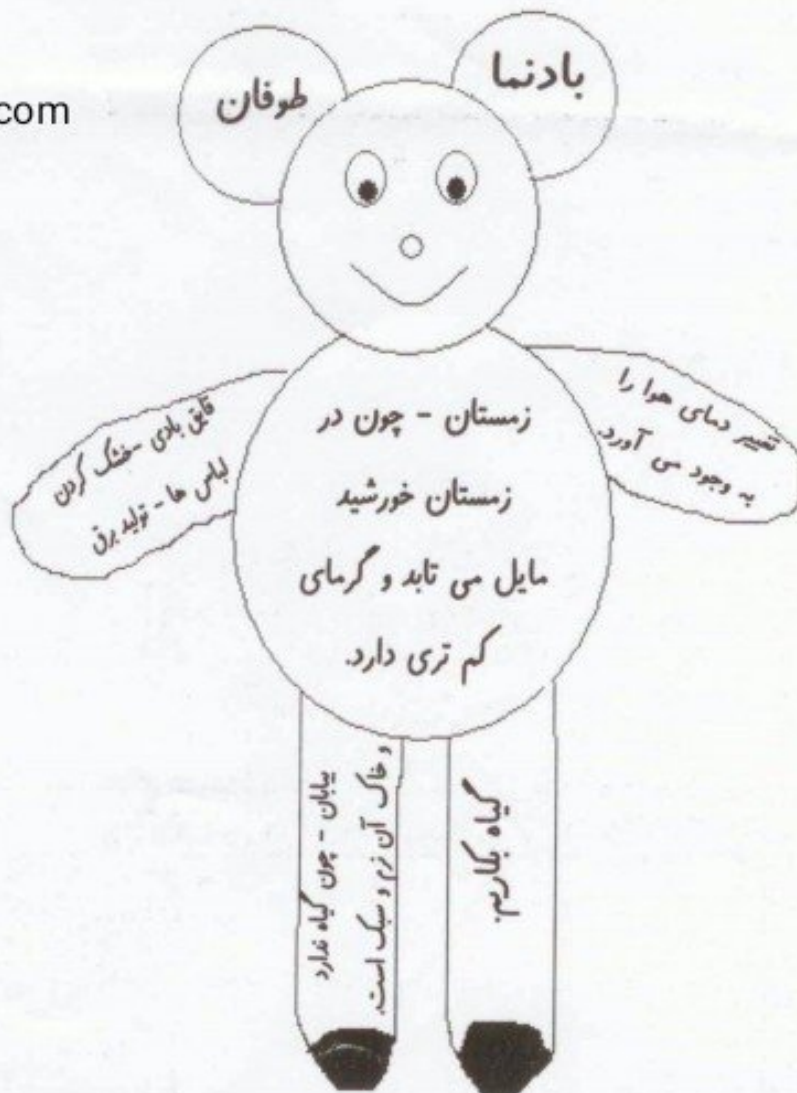 بادنما
طوفان
com
تغییر دمای هوا را
به وجود می آورد.
زمستان - چون در
زمستان خورشید
مایل می تابد و گرمای
کم تری دارد.
قایق بادی - خشک کردن
لباس ها - تولید برق
گیاه بکاریم.
بیابان - چون گیاه ندارد
و خاک آن نرم و سبک است.